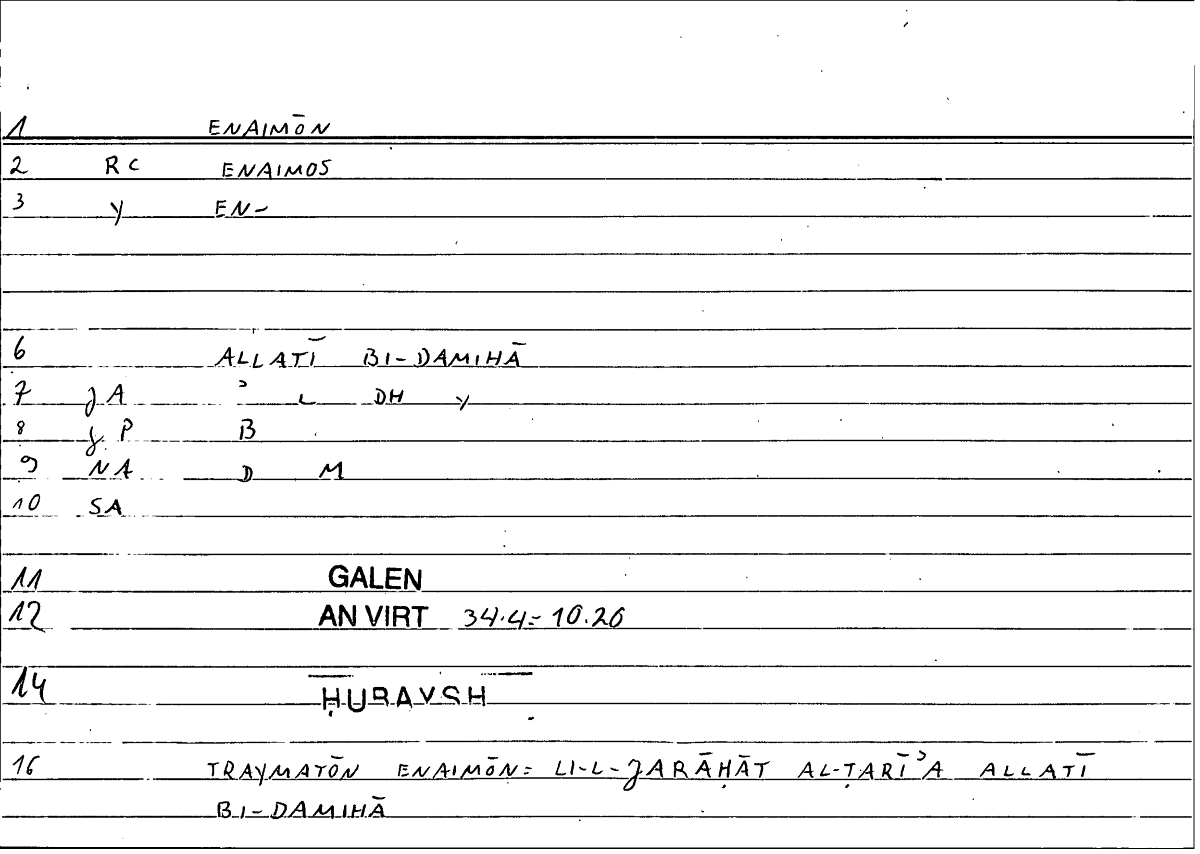 1 ENAIMŌN
2 RC ENAIMOS
3 Y EN-
6 ALLATĪ BI-DAMIHĀ
7 JA ʾ L DH Y
8 J P B
9 NA D M
10 SA
11 GALEN
12 AN VIRT 34.4= 10.26
14 ḤUBAYSH
16 TRAYMATŌN ENAIMŌN= LI-L-JARĀḤĀT AL-ṬARĪʾA ALLATĪ
BI-DAMIHĀ